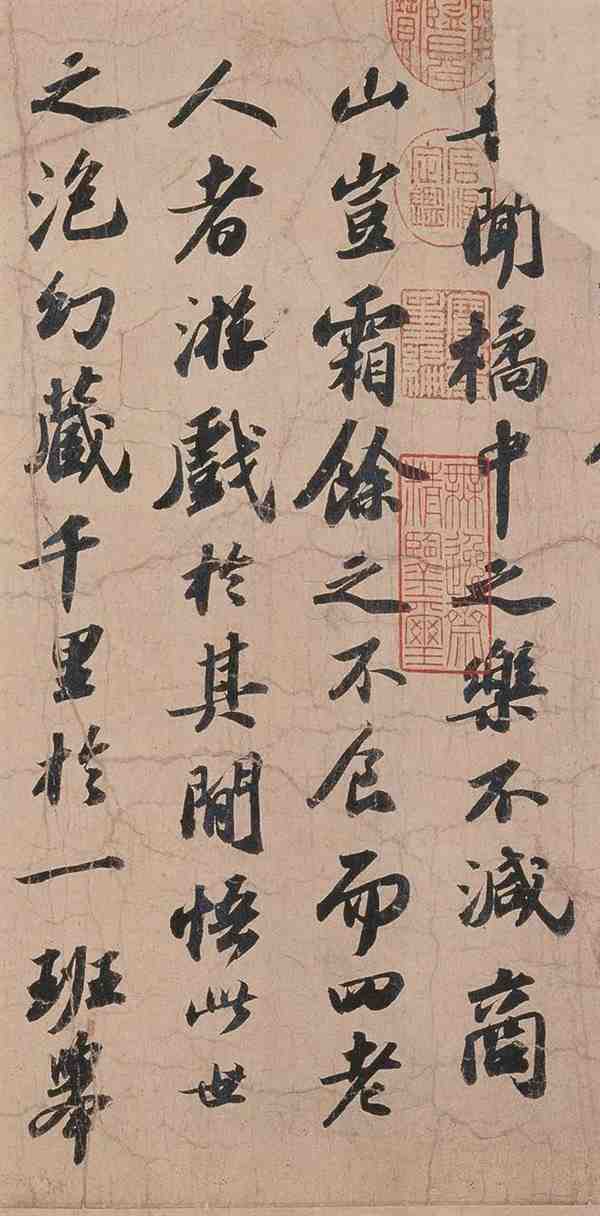 聞橘中之樂不減商
山豈霜餘之不食而四老
人者游戲於其間悟此世
之泡幻藏千里於一班舉